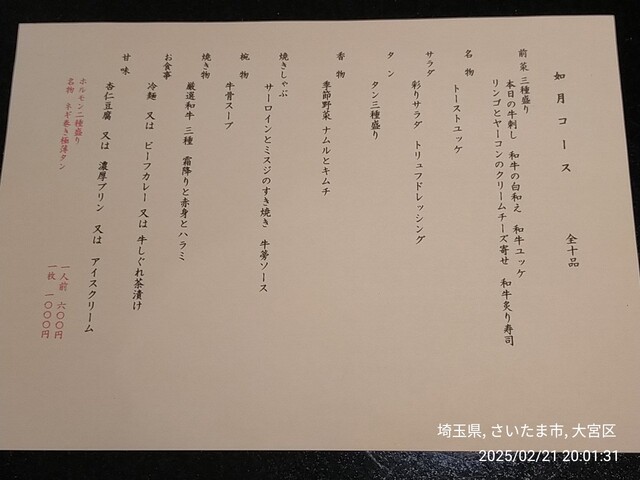 如月コース 全十品
前菜 三種盛り
本日の牛刺し 和牛の白和え 和牛ユッケ
リンゴとヤーコンのクリームチーズ寄せ 和牛炙り寿司
名物
トーストユッケ
サラダ
彩りサラダ トリュフドレッシング
タン
タン三種盛り
香物
季節野菜 ナムルとキムチ
焼きしゃぶ
サーロインとミスジのすき焼き 牛蒡ソース
椀物
牛骨スープ
焼き物
厳選和牛 三種 霜降りと赤身とハラミ
お食事
冷麺 又は ビーフカレー 又は 牛しぐれ茶漬け
甘味
杏仁豆腐 又は 濃厚プリン 又は アイスクリーム
ホルモン二種盛り 一人前 六〇〇円
名物 ネギ巻き極薄タン 一枚 一〇〇〇円
埼玉県, さいたま市, 大宮区
2025/02/21 20:01:31